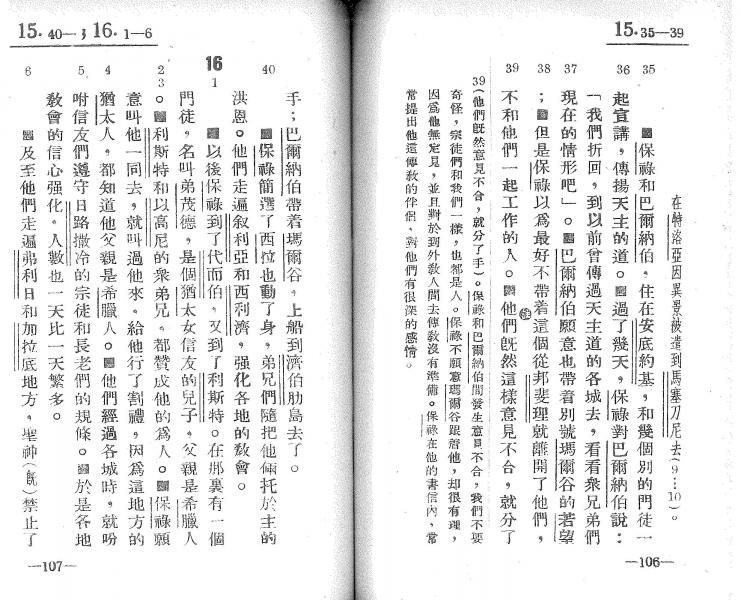 15.35—39
在特洛亞因異景被遣到馬塞刀尼去(9…10)。
35 ▩保祿和巴爾納伯,住在安底約基,和幾個別的門徒一
36 起宣講,傳揚天主的道。▩過了幾天,保祿對巴爾納伯說:
「我們折回,到以前曾傳過天主道的各城去,看看衆兄弟們
37 現在的情形吧」。▩巴爾納伯願意也帶着別號瑪爾谷的若望
38 ;▩但是保祿以爲最好不帶着這個從邦斐理就離開了他們,
39 不和他們一起工作的人。▩他們旣然這樣意見不合,就分了
39(他們旣然意見不合,就分了手)。保祿和巴爾納伯間發生意見不合,我們不要
奇怪,宗徒們和我們一樣,也都是人。保祿不願意瑪爾谷跟着他,却很有理,
因爲他無定見,並且對於到外敎人間去傳敎沒有準備。保祿在他的書信內,常
常提出他這傳敎的伴侶,對他們有很深的感情。
—106—
15.40—;16.1—6
手;巴爾納伯帶着瑪爾谷,上船到濟伯肋島去了。
40 ▩保祿簡選了西拉也動了身,弟兄們隨把他倆托於主的
洪恩。他們走遍敘利亞和西利濟,强化各地的敎會。
16
1 ▩以後保祿到了代而伯,又到了利斯特。在那裏有一個
門徒,名叫弟茂德,是個猶太女信友的兒子,父親是希臘人
2 3 。▩利斯特和以高尼的衆弟兄,都贊成他的爲人。▩保祿願
意叫他一同去,就叫過他來,給他行了割禮,因爲這地方的
4 猶太人,都知道他父親是希臘人。▩他們經過各城時,就吩
5 咐信友們遵守日路撒冷的宗徒和長老們的規條。▩於是各地
敎會的信心强化。人數也一天比一天繁多。
6 ▩及至他們走遍弗利日和加拉底地方,聖神(旣)禁止了
—107—